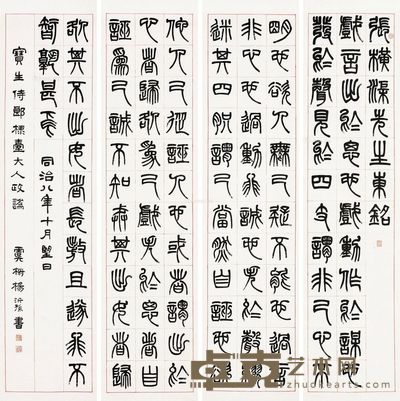 張橫渠先生東銘
戲言出於思也戲動作於謀也
發於聲見於四支謂非己心不
明也欲人無己疑不能也過言
非心也過動非誠也失於聲繆
迷其四體謂己當然自誣也欲
他人己從誣人也或者出於
心者歸咎為己戲失於思者自
誣為己誠不知戒其出女者歸
咎其不出女者長敖且遂非不
智孰甚焉 同治八年十月望日
寶生侍郎 大人政 楊沂孫書
卓克艺术网
zhuokearts.com